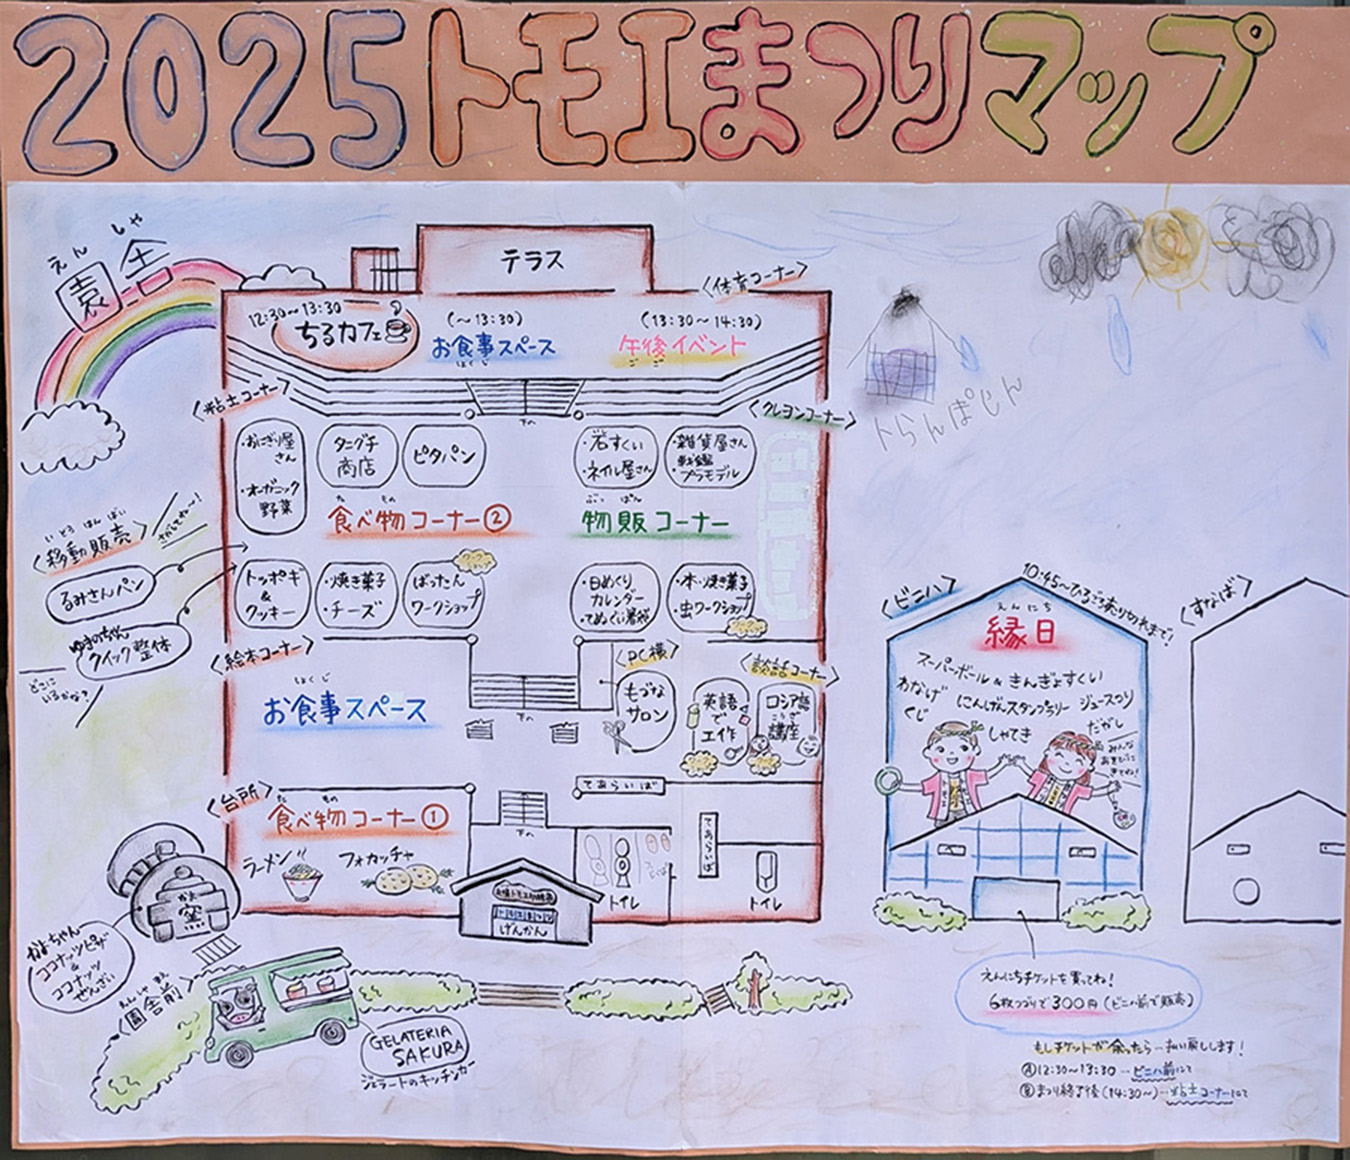 2025トモエまつりマップ
えんしゃ
園舎
テラス
〈体育コーナー〉
12:30～13:30
ちるカフェ
(～13:30)
お食事スペース
しょくじ
(13:30～14:30)
午後イベント
ごご
〈粘土コーナー〉
〈クレヨンコーナー〉
とらんぽりん
下へ
・おにぎり屋さん
・オーガニック野菜
タニグチ
商店
ピタパン
・石すくい
・ネイル屋さん
・雑貨屋さん
・プラモデル
たもの
食べ物コーナー②
ぶっぱん
物販コーナー
いどうはんばい
〈移動販売〉
さがしてね～!
るみさんパン
ゆきのちゃん
クイック整体
どこに
いるかな?
トッポギ
&
クッキー
・焼き菓子
・チーズ
ばったん
ワークショップ
・日めくり
カレンダー
・てぬぐい
・本・焼き菓子
・虫ワークショップ
〈絵本コーナー〉
しょくじ
お食事スペース
下へ
〈PC横〉
もづな
サロン
〈談話コーナー〉
英語
で
工作
ロシア語
こうざ
講座
てあらいば
〈台所〉
たもの
食べ物コーナー①
ラーメン
フォカッチャ
下へ
げんかん
トイレ
てあらいば
トイレ
窯
かよちゃん
ココナッツピザ
&
ココナッツ
ぜんざい
えんしゃまえ
〈園舎前〉
GELATERIA
SAKURA
ジェラートのキッチンカー
〈ビニハ〉
10:45～ひるごろ売り切れまで!
えんにち
縁日
スーパーボール&きんぎょすくい
わなげ にんげんスタンプラリー ジュースつり
くじ しゃてき だがし
みんな
あそびに
きてね!
〈すなば〉
えんにちチケットを買ってね!
6枚つづりで300円(ビニハ前で販売)
もしチケットが余ったら…払い戻しします!
Ⓐ12:30～13:30…ビニハ前にて
Ⓑまつり終了後(14:30～)…粘土コーナーにて